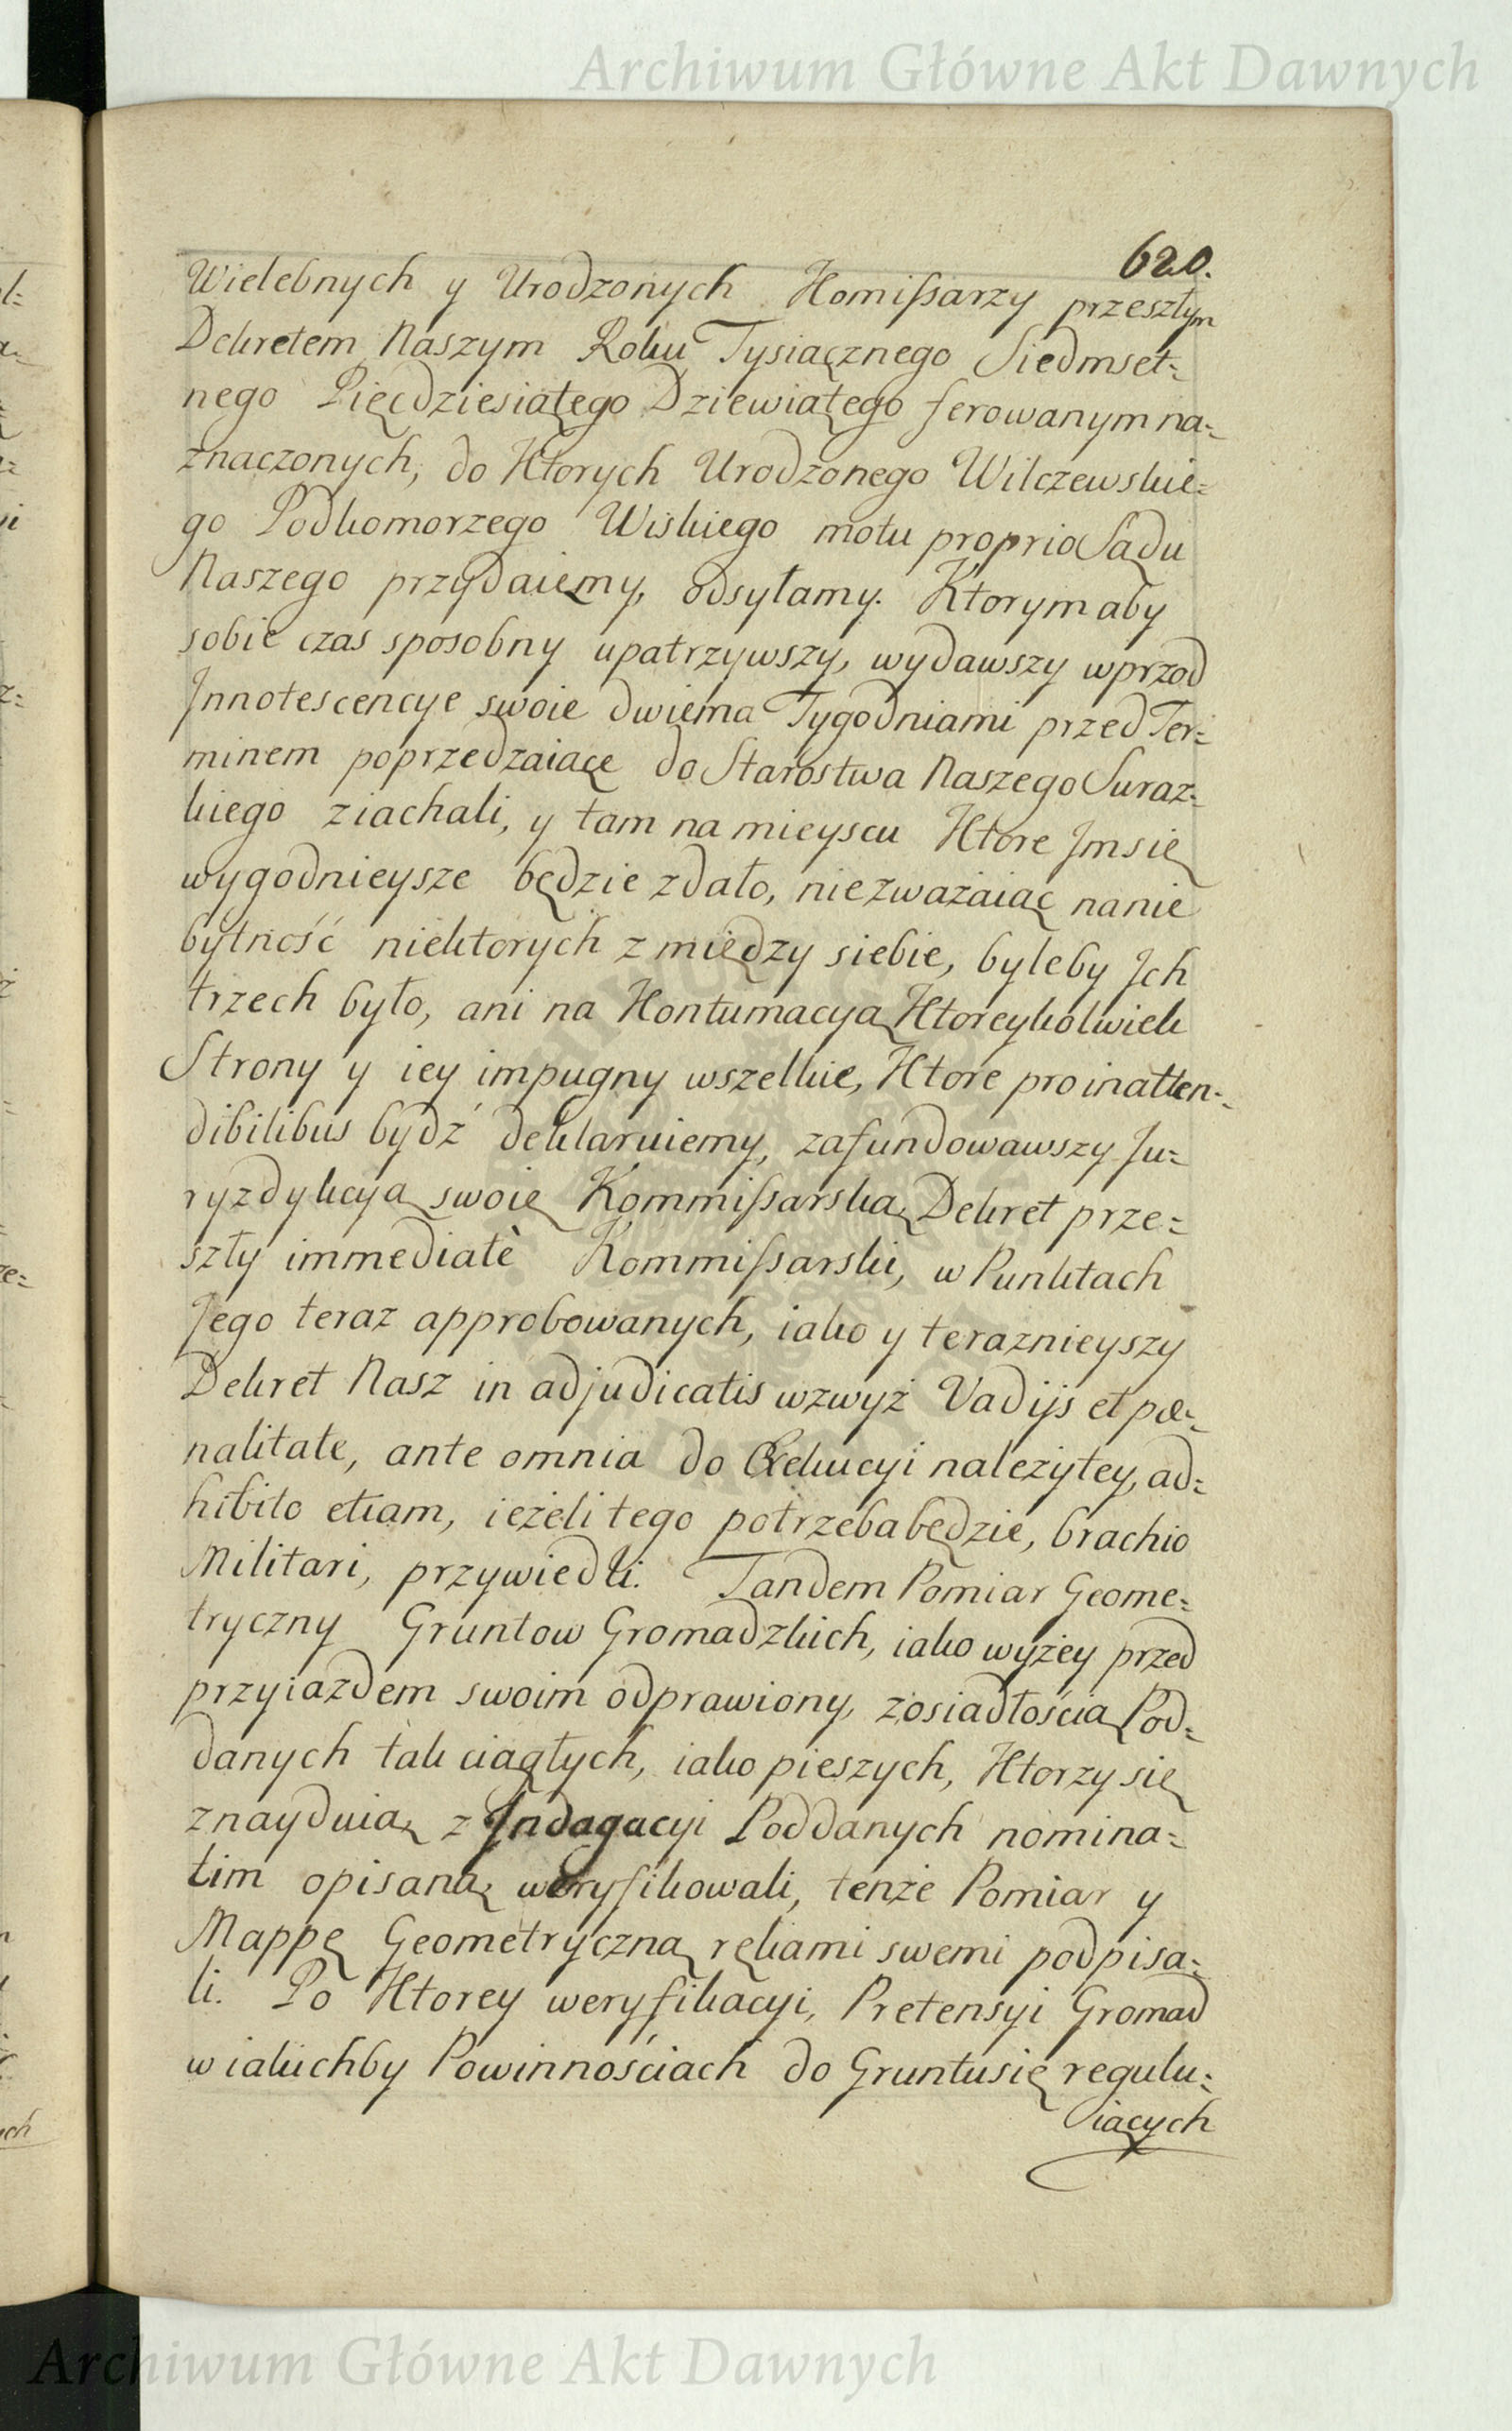 Archiwum Główne Akt Dawnych
620.
Wielebnych y Urodzonych Kommissarzy przeszłym
Dekretem Naszym Roku Tysiącznego Siedmset=
nego Pięcdziesiątego Dziewiątego ferowanym na=
znaczonych, do Ktorych Urodzonego Wilczewskie=
go Podkomorzego Wiskiego motu proprio Sądu
Naszego przydaiemy, odsyłamy. Ktorym aby
sobie czas sposobny upatrzywszy, wydawszy wprzod
Innotescencye swoie dwiema Tygodniami przed Ter=
minem poprzedzaiące do Starostwa Naszego Suraz=
kiego ziachali, y tam na mieyscu Ktore Im się
wygodnieysze będzie zdało, niezważaiąc na nie
bytność niektorych z między siebie, byleby Ich
trzech było, ani na Kontumacyą Ktoreykolwiek
Strony y iey impugny wszelkie, Ktore pro inatten=
dibilibus bydź deklaruiemy, zafundowawszy Ju=
ryzdykcyą swoię Kommissarską, Dekret prze=
szły immediatè Kommissarski, w Punktach
Jego teraz approbowanych, iako y teraznieyszy
Dekret Nasz in adjudicatis wzwyż Vadijs et pæ=
nalitate, ante omnia do Exekucyi należytey, ad=
hibito etiam, ieżeli tego potrzeba będzie, brachio
Militari, przywiedli. Tandem Pomiar Geome=
tryczny Gruntow Gromadzkich, iako wyżey przed
przyiazdem swoim odprawiony, z osiadłością Pod=
danych tak ciągłych, iako pieszych, Ktorzy się
znayduią, z Indagacyi Poddanych nomina=
tim opisaną weryfikowali, tenże Pomiar y
Mappę Geometryczną rękami swemi podpisa=
li. Po Ktorey weryfikacyi, Pretensyi Gromad
w iakichby Powinnościach do Gruntu się regulu=
iących
Archiwum Główne Akt Dawnych